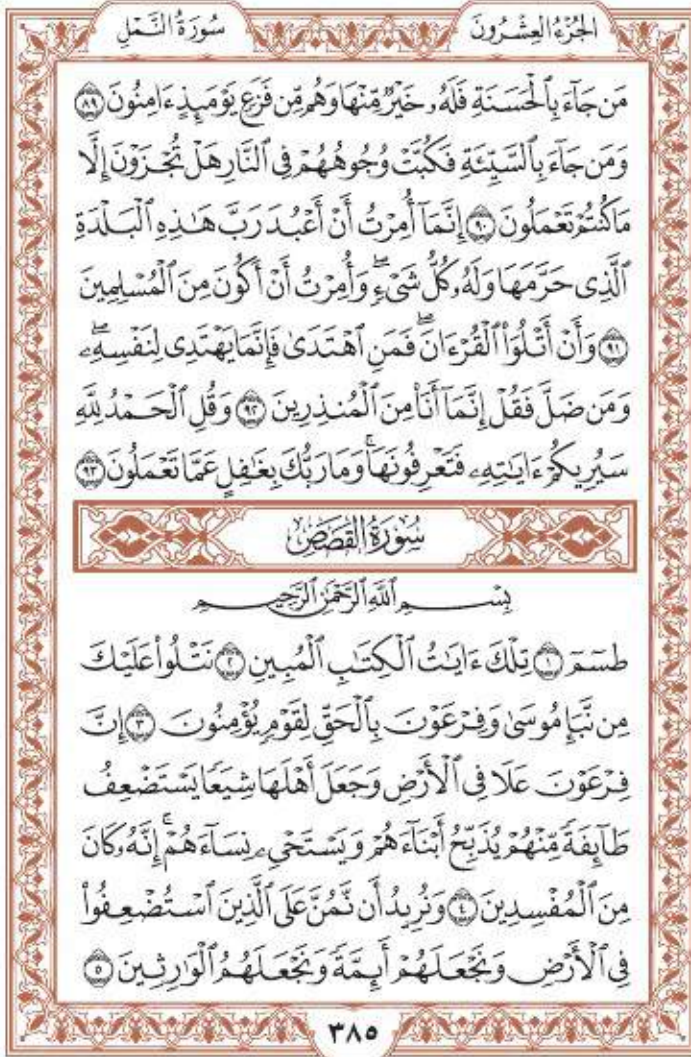 الجُزْءُ العِشْرُونَ
سُورَةُ النَّمْلِ
مَن جَآءَ بِٱلْحَسَنَةِ فَلَهُۥ خَيْرٌ مِّنْهَا وَهُم مِّن فَزَعٍ يَوْمَئِذٍ ءَامِنُونَ ۝٨٩
وَمَن جَآءَ بِٱلسَّيِّئَةِ فَكُبَّتْ وُجُوهُهُمْ فِى ٱلنَّارِ هَلْ تُجْزَوْنَ إِلَّا
مَا كُنتُمْ تَعْمَلُونَ ۝٩٠ إِنَّمَآ أُمِرْتُ أَنْ أَعْبُدَ رَبَّ هَٰذِهِ ٱلْبَلْدَةِ
ٱلَّذِى حَرَّمَهَا وَلَهُۥ كُلُّ شَىْءٍۖ وَأُمِرْتُ أَنْ أَكُونَ مِنَ ٱلْمُسْلِمِينَ
۝٩١ وَأَنْ أَتْلُوَا۟ ٱلْقُرْءَانَۖ فَمَنِ ٱهْتَدَىٰ فَإِنَّمَا يَهْتَدِى لِنَفْسِهِۦۖ
وَمَن ضَلَّ فَقُلْ إِنَّمَآ أَنَا۠ مِنَ ٱلْمُنذِرِينَ ۝٩٢ وَقُلِ ٱلْحَمْدُ لِلَّهِ
سَيُرِيكُمْ ءَايَٰتِهِۦ فَتَعْرِفُونَهَاۚ وَمَا رَبُّكَ بِغَٰفِلٍ عَمَّا تَعْمَلُونَ ۝٩٣
سُورَةُ القَصَصِ
بِسْمِ ٱللَّهِ ٱلرَّحْمَٰنِ ٱلرَّحِيمِ
طسٓمٓ ۝١ تِلْكَ ءَايَٰتُ ٱلْكِتَٰبِ ٱلْمُبِينِ ۝٢ نَتْلُوا۟ عَلَيْكَ
مِن نَّبَإِ مُوسَىٰ وَفِرْعَوْنَ بِٱلْحَقِّ لِقَوْمٍ يُؤْمِنُونَ ۝٣ إِنَّ
فِرْعَوْنَ عَلَا فِى ٱلْأَرْضِ وَجَعَلَ أَهْلَهَا شِيَعًا يَسْتَضْعِفُ
طَآئِفَةً مِّنْهُمْ يُذَبِّحُ أَبْنَآءَهُمْ وَيَسْتَحْىِۦ نِسَآءَهُمْۚ إِنَّهُۥ كَانَ
مِنَ ٱلْمُفْسِدِينَ ۝٤ وَنُرِيدُ أَن نَّمُنَّ عَلَى ٱلَّذِينَ ٱسْتُضْعِفُوا۟
فِى ٱلْأَرْضِ وَنَجْعَلَهُمْ أَئِمَّةً وَنَجْعَلَهُمُ ٱلْوَٰرِثِينَ ۝٥
٣٨٥